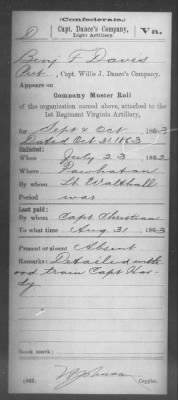 (Confederate.)
D | Capt. Dance's Company, Light Artillery. | Va.
Benj F Davis
Pvt, Capt. Willis J. Dance's Company.
Appears on
Company Muster Roll
of the organization named above, attached to the
1st Regiment Virginia Artillery,
for Sept & Oct, 1863
Dated Oct 31 1863
Enlisted:
When July 23, 1862
Where Powhatan
By whom Lt. Walthall
Period war
Last paid:
By whom Capt Christian
To what time Aug 31, 1863
Present or absent Absent
Remarks: Detailed with
ord train Capt Har-
dy
Book mark:
Copyist.